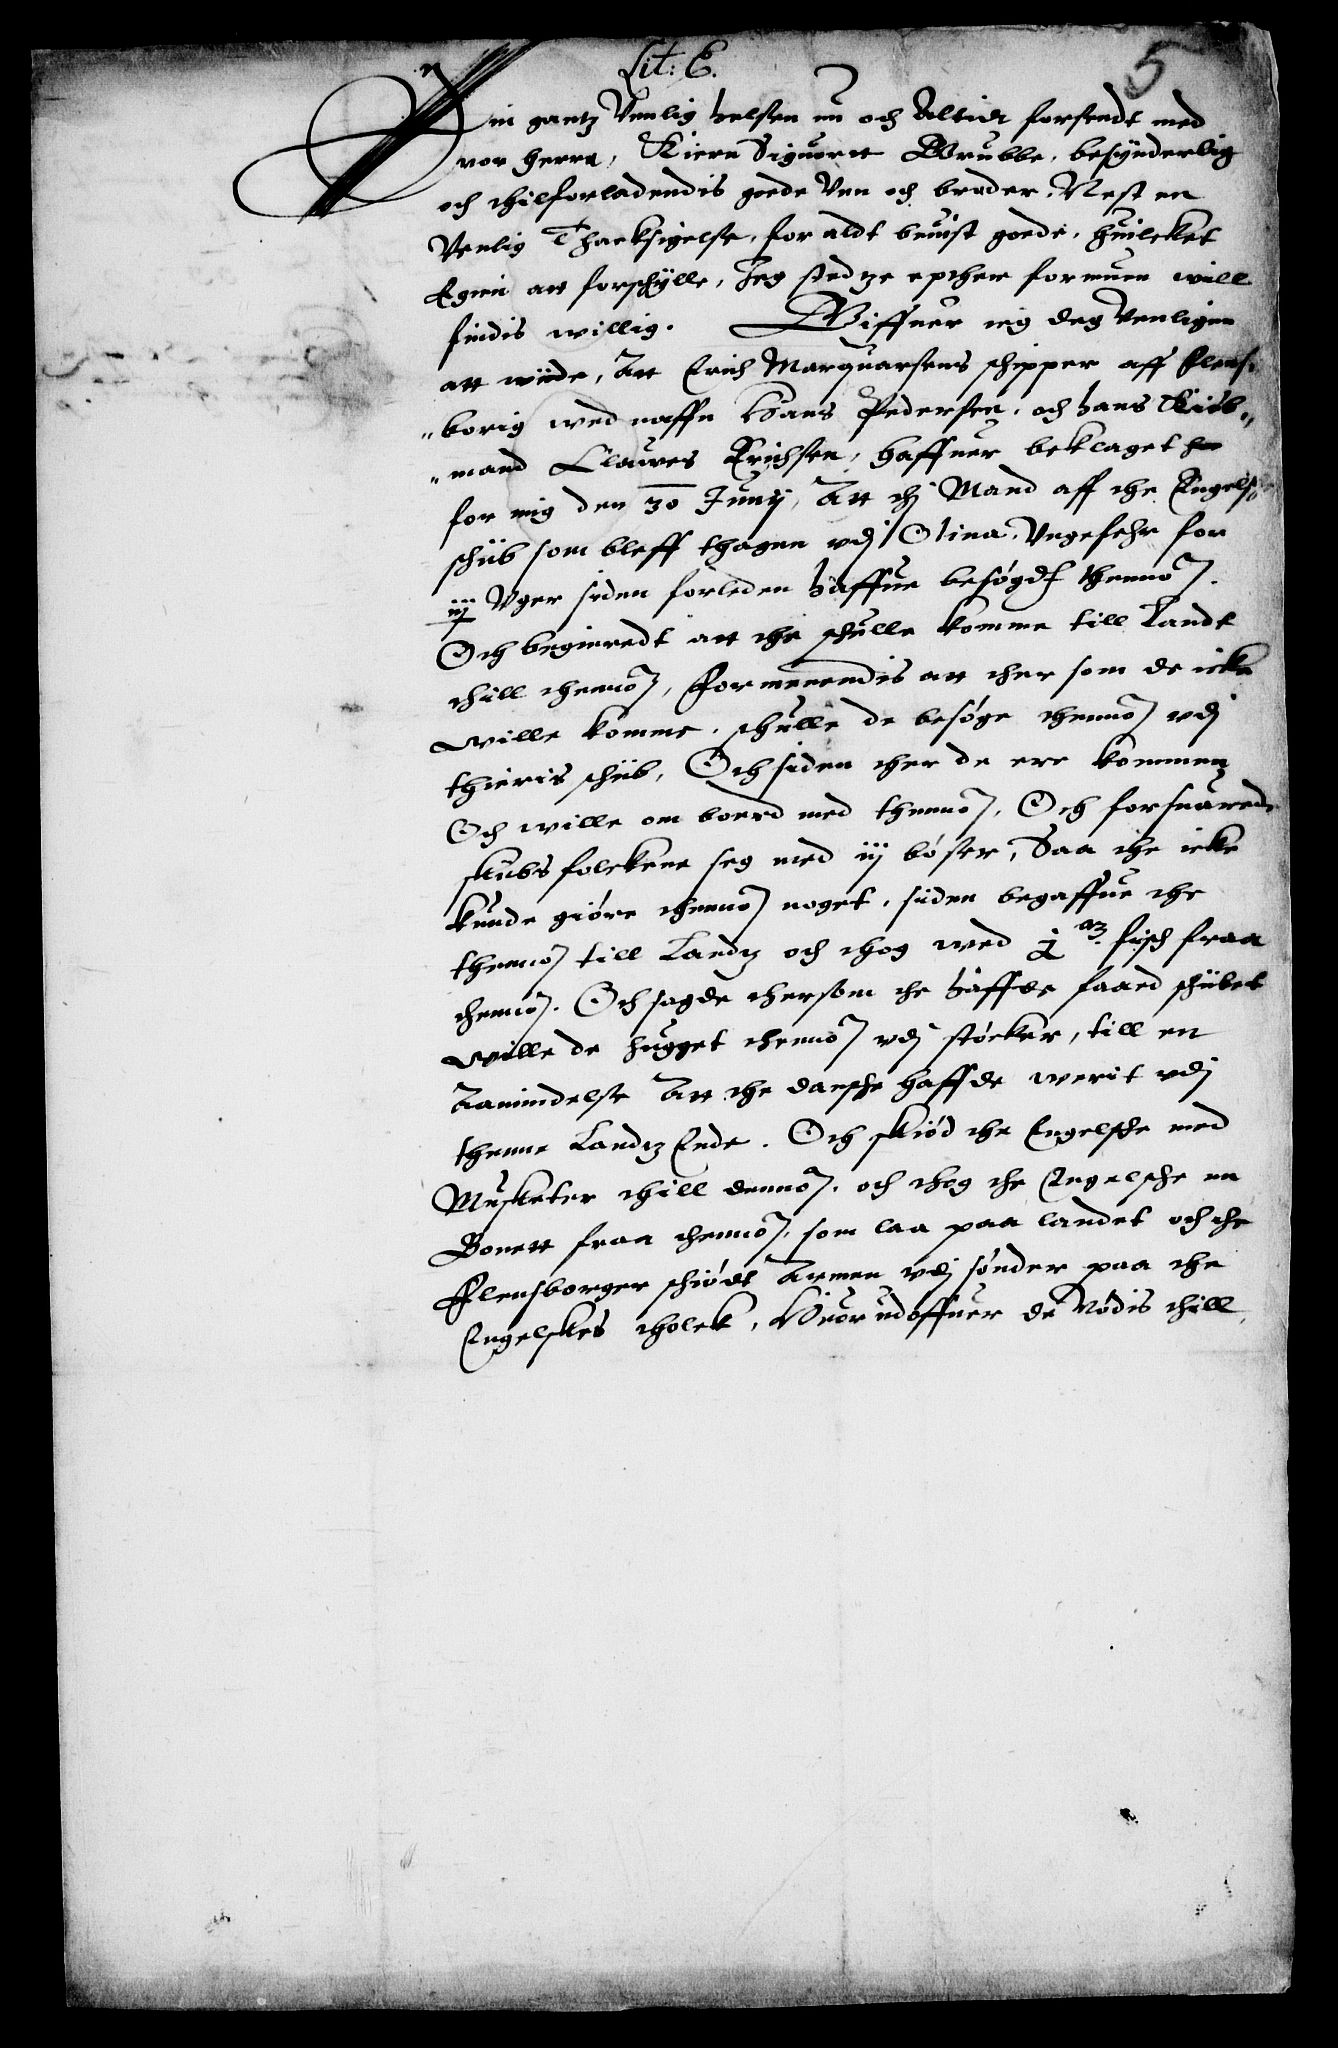 Lit: C.
5
Min gantz Venlig helsen nu och Altidt forsendt med
vor herre, Kiere Siguort Grubbe, besynderlig
och thilforladendis goede Ven och broder. Nest en
Venlig Thacksigelse, for aldt beuist goede, huilcket
Egien att forschylle, Jeg stedtze epther formuen will
findis willig. Giffuer ieg deg Venligen
att wiide, Att Erich Marquarsens schipper aff Flens¬
"borig wed naffn Hans Pedersen, och hans Kiøb¬
"mand Clawes Erichsen, haffuer beklaget
for mig den 30 Junij, Att thj Mand aff the Engelsche
schiib som bleff thagen vdj Olina, Vngefehr for
iij Vger siden forleden haffue besøgdt thennom.
Och begieredt att the schulle komme till Landt
thill thennom, Formenendis att ther som de icke
wille komme, schulle de besøge thennom vdj
thieris schiib, Och siden ther de ere kommen
Och wille om boerd med thennom, Och forsuarede
skibs folckene seg med iij bøsser, Saa the icke
kunde giøre thennom noget, siden begaffue the
thennom till Landtz och thog wed j m fisch fraa
thennom. Och sagde thersom the haffde faaed schibet
wille de hugget thennom vdj støcker, till en
Aamindelse Att the dansche haffde werit vdj
thenne Landtz Ende. Och skiød the Engelsche med
Musketer thill dennom, och thog the Engelsche en
Bonett fraa thennom, som laa paa landet och the
Flensborger schiødt Armen vdj sønder paa the
Engelskes tholck, Huorudoffuer de Nødis thill